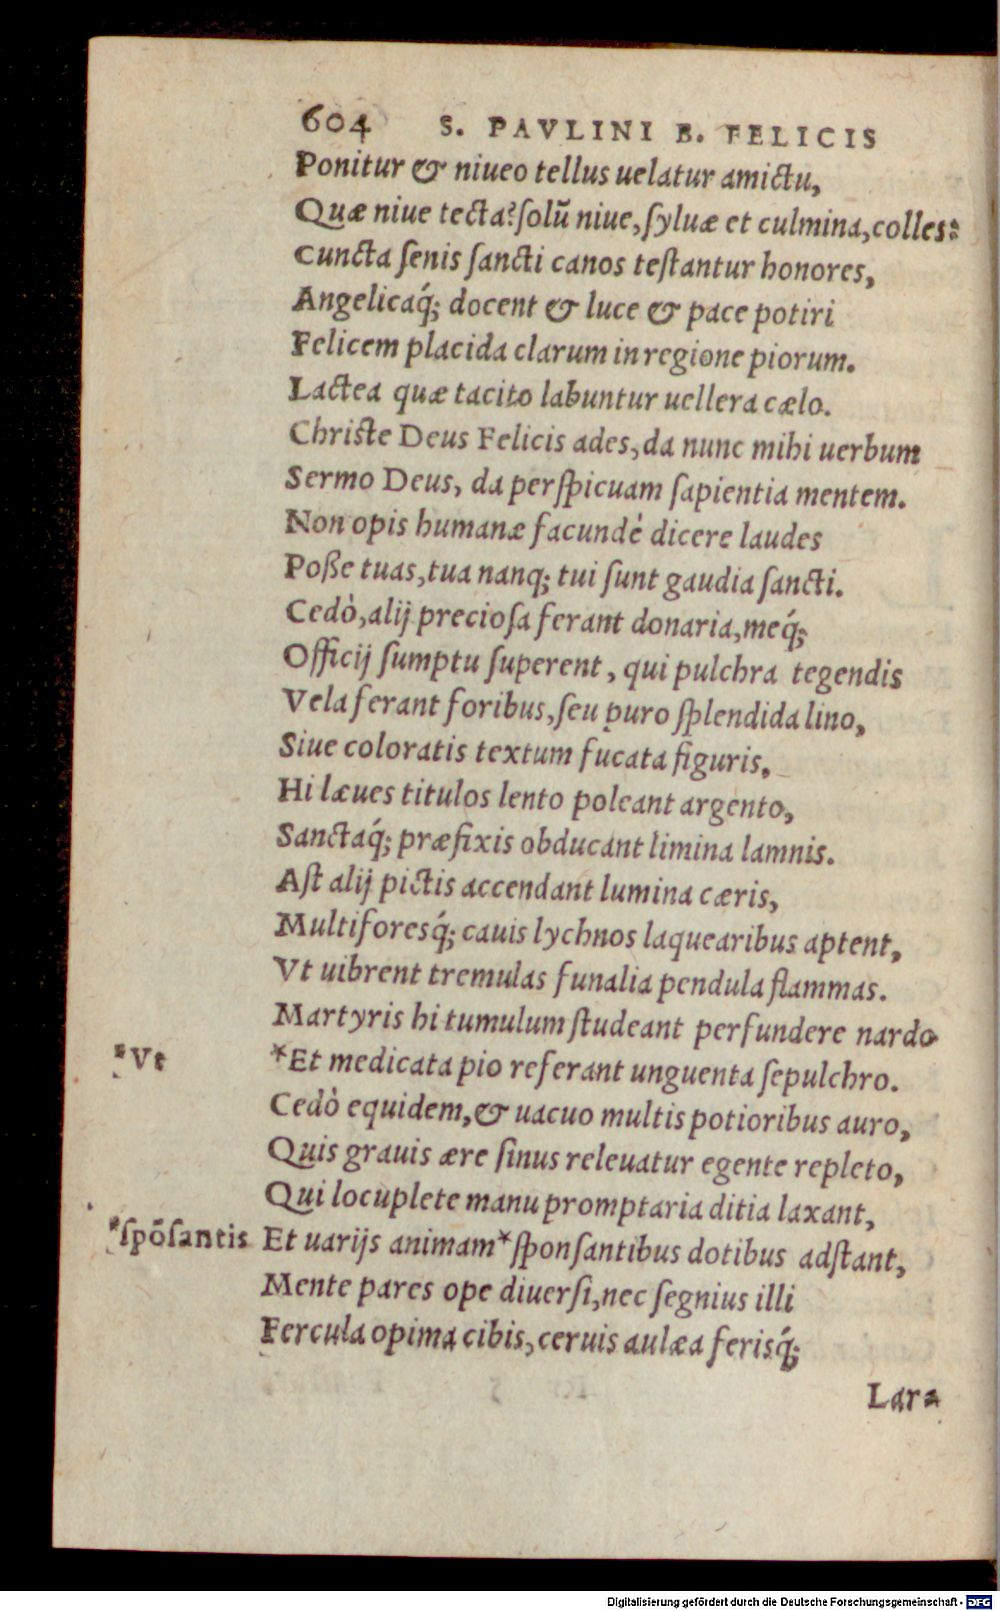 604 S. PAVLINI B. FELICIS
Ponitur & niueo tellus uelatur amictu,
Quæ niue tecta? ſolũ niue, ſyluæ et culmina, colles:
Cuncta ſenis ſancti canos teſtantur honores,
Angelicaq́; docent & luce & pace potiri
Felicem placida clarum in regione piorum.
Lactea quæ tacito labuntur uellera cælo.
Chriſte Deus Felicis ades, da nunc mihi uerbum
Sermo Deus, da perſpicuam ſapientia mentem.
Non opis humanæ facundè dicere laudes
Poße tuas, tua nanq; tui ſunt gaudia ſancti.
Cedò, alij precioſa ferant donaria, meq́;
Officij ſumptu ſuperent, qui pulchra tegendis
Vela ferant foribus, ſeu puro ſplendida lino,
Siue coloratis textum fucata figuris,
Hi læues titulos lento poleant argento,
Sanctaq́; præfixis obducant limina lamnis.
Aſt alij pictis accendant lumina cæris,
Multiforesq́; cauis lychnos laquearibus aptent,
Vt uibrent tremulas funalia pendula flammas.
Martyris hi tumulum ſtudeant perfundere nardo
*Vt *Et medicata pio referant unguenta ſepulchro.
Cedò equidem, & uacuo multis potioribus auro,
Quis grauis ære ſinus releuatur egente repleto,
Qui locuplete manu promptaria ditia laxant,
*ſpõſantis Et uarijs animam *ſponſantibus dotibus adſtant,
Mente pares ope diuerſi, nec ſegnius illi
Fercula opima cibis, ceruis aulæa ferisq́;
Lar⸗
Digitalisierung gefördert durch die Deutsche Forschungsgemeinschaft - DFG